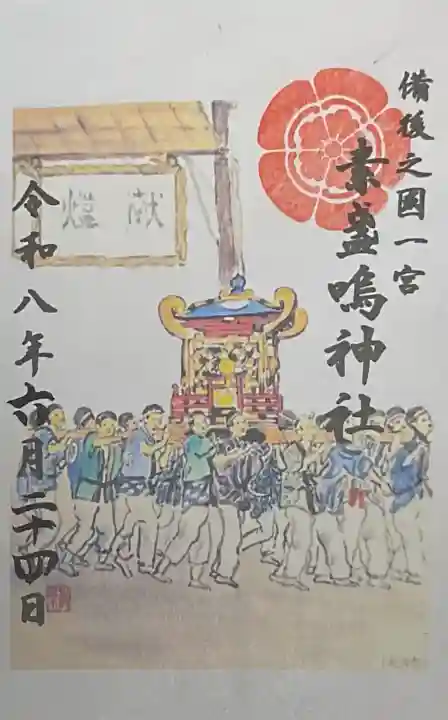 備後之國一宮
素盞嗚神社
献燈
令和八年六月二十四日